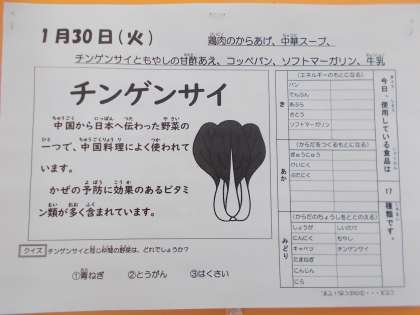 1月30日(火)
鶏肉のからあげ、中華スープ、
チンゲンサイともやしの甘酢あえ、コッペパン、ソフトマーガリン、牛乳
チンゲンサイ
中国から日本へ伝わった野菜の
一つで、中国料理によく使われて
います。
かぜの予防に効果のあるビタミ
ン類が多く含まれています。
クイズ チンゲンサイと同じ仲間の野菜は、どれでしょうか?
①青ねぎ ②とうがん ③はくさい
今日、使用している食品は
17
種類です。
き
(エネルギーのもとになる)
パン
でんぷん
あぶら
さとう
ソフトマーガリン
あか
(からだをつくるもとになる)
ぎゅうにゅう
けいにく
ぶたにく
みどり
(からだのちょうしをととのえる)
しょうが しいたけ
にんにく もやし
キャベツ チンゲンサイ
たまねぎ
にんじん
にら